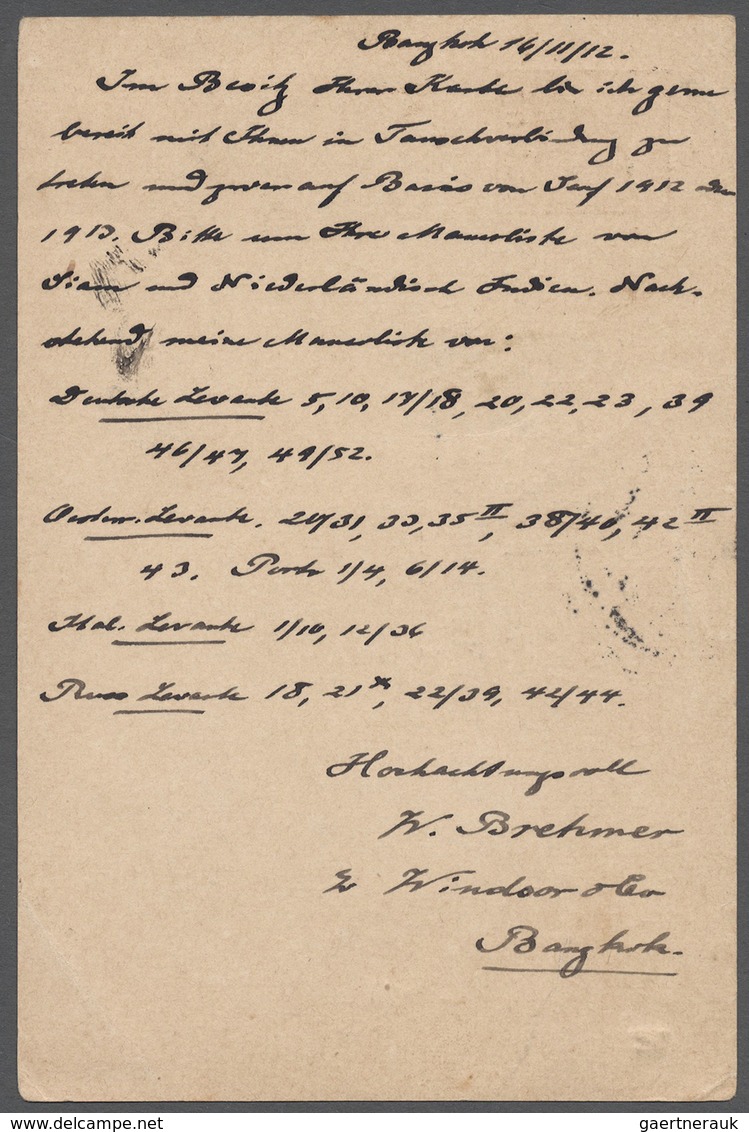 Bangkok 16/11/12.
Im Besitz Ihrer Karte bin ich gerne
bereit mit Ihnen in Tauschverbindung zu
treten und zwar auf Basis von Senf 1912 oder
1913. Bitte um Ihre Mancoliste von
Siam und Niederländisch Indien. Nach-
stehend meine Mancoliste von:
Deutsche Levante 5, 10, 17/18, 20, 22, 23, 39
46/47, 49/52.
Oesterr. Levante. 33, 35 II, 38/40, 42 II
43. Porto 1/4, 6/14.
Ital. Levante 1/10, 12/36
Russ Levante 18, 21x, 22/39, 42/44.
Hochachtungsvoll
W. Brehmer
Windsor & Co
Bangkok.
gaertnerauk